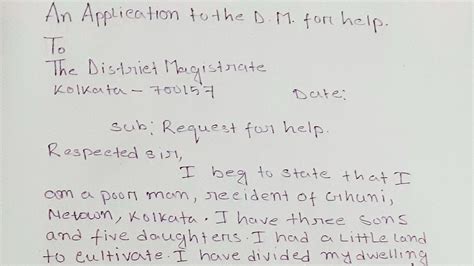 An Application to the D.M. for help.
To
The District Magistrate
Kolkata - 700157
Date:
Sub: Request for help.
Respected sir,
I beg to state that I
am a poor man, recident of Gihuni,
Netown, Kolkata. I have three sons
and five daughters. I had a little land
to cultivate. I have divided my dwelling